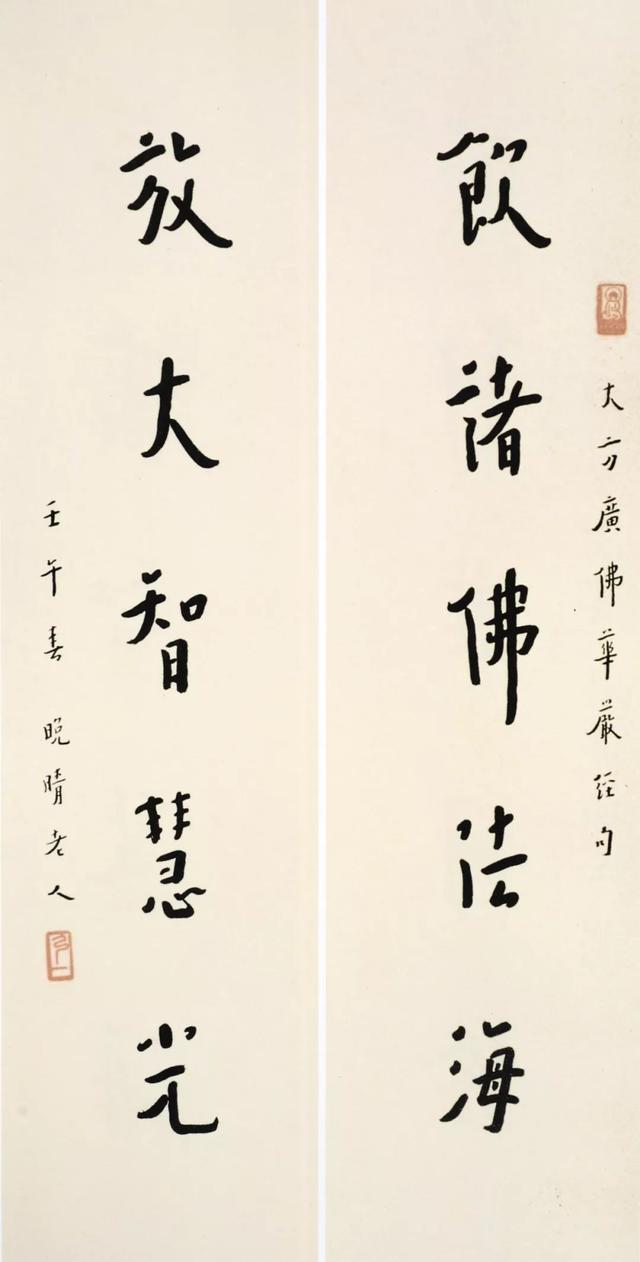 大方廣佛華嚴經句
飲諸佛法海
放大智慧光
壬午春 晚晴老人
弘一